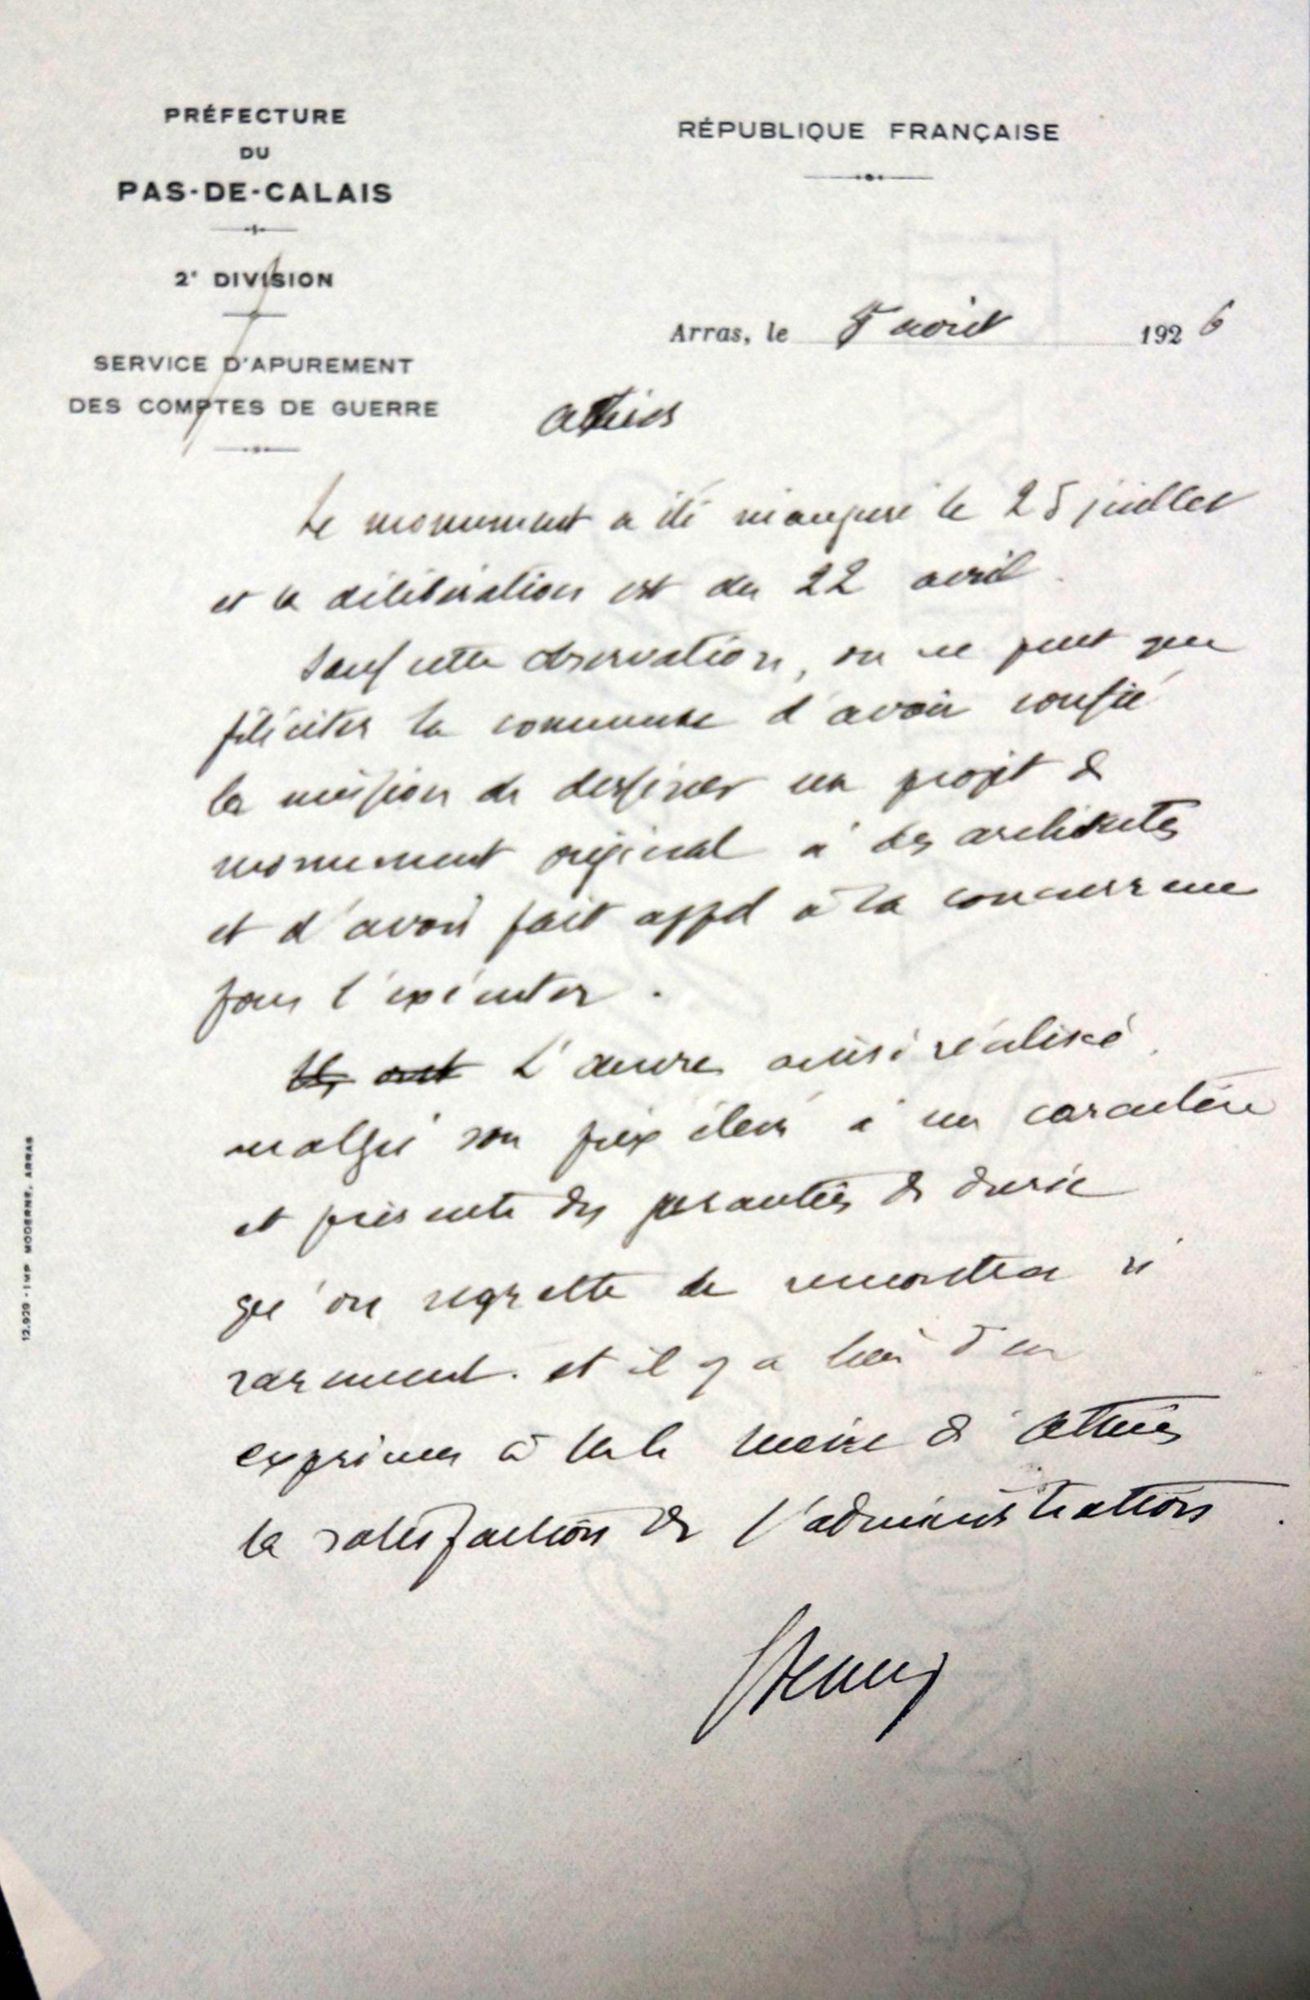 PRÉFECTURE
DU
PAS-DE-CALAIS
2e DIVISION
SERVICE D'APUREMENT
DES COMPTES DE GUERRE
RÉPUBLIQUE FRANÇAISE
Arras, le 5 août 1926
Athies
Le monument a été inauguré le 25 juillet
et la délibération est du 22 avril.
Sauf cette observation, on ne peut que
féliciter la commune d'avoir confié
la mission de dessiner un projet de
monument original à des architectes
et d'avoir fait appel à la concurrence
pour l'exécuter.
Ils ont L'œuvre ainsi réalisé
malgré son prix élevé a un caractère
et présente des garanties de durée
qu'on regrette de rencontrer si
rarement. et il y a lieu d'en
exprimer à le maire d'Athies
la satisfaction de l'administration.
12.929 - IMP. MODERNE, ARRAS